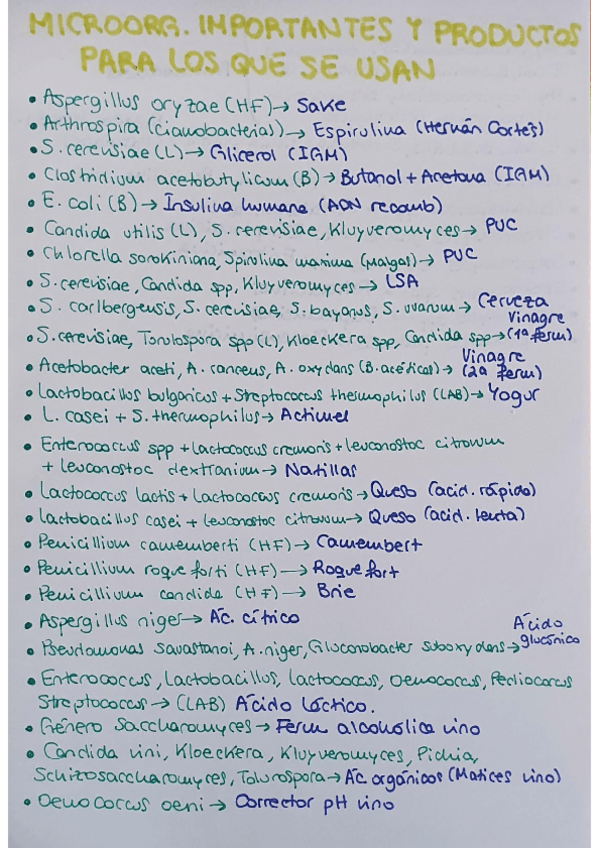 MICROORG. IMPORTANTES Y PRODUCTOS
PARA LOS QUE SE USAN
• Aspergillus oryzae (HF)→ Sake
• Arthrospira (cianobacterias)→ Espirulina (Hernán Cortés)
• S. cerevisiae (L)→ Glicerol (IGM)
• Clostridium acetobutylicum (B)→ Butanol + Acetona (IGM)
• E. coli (B)→ Insulina humana (ADN recomb)
• Candida utilis (L), S. cerevisiae, Kluyveromyces→ PUC
• Chlorella sorokiniana, Spirulina maxima (Malgas)→ PUC
• S. cerevisiae, Candida spp, Kluyveromyces→ LSA
• S. carlbergensis, S. cerevisiae, S. bayanus, S. uvarum→ Cerveza
• S. cerevisiae, Torulospora spp (L), Kloeckera spp, Candida spp→ Vinagre (1ª ferm)
• Acetobacter aceti, A. ranceus, A. oxydans (B. acéticas)→ Vinagre (2ª ferm)
• Lactobacillus bulgaricus + Streptococcus thermophilus (LAB)→ Yogur
• L. casei + S. thermophilus→ Actimel
• Enterococcus spp + lactococcus cremoris + leuconostoc citrovum
+ leuconostoc dextranium→ Natillas
• Lactococcus lactis + Lactococcus cremoris→ Queso (acid. rápida)
• Lactobacillus casei + leuconostoc citrovum→ Queso (acid. lenta)
• Penicillium camemberti (HF)→ Camembert
• Penicillium roqueforti (HF)→ Roquefort
• Penicillium candide (HF)→ Brie
• Aspergillus niger→ Ác. cítrico
• Pseudomonas savastanoi, A. niger, Gluconobacter suboxydans→ Ácido glucónico
• Enterococcus, Lactobacillus, lactococcus, Oenococcus, Pediococcus
Streptococcus→ (LAB) Ácido láctico.
• Género Saccharomyces→ Ferm alcohólica vino
• Candida vini, Kloeckera, Kluyveromyces, Pichia,
Schizosaccharomyces, Tolurospora→ Ác. orgánicos (Matices vino)
• Oenococcus oeni→ Corrector pH vino